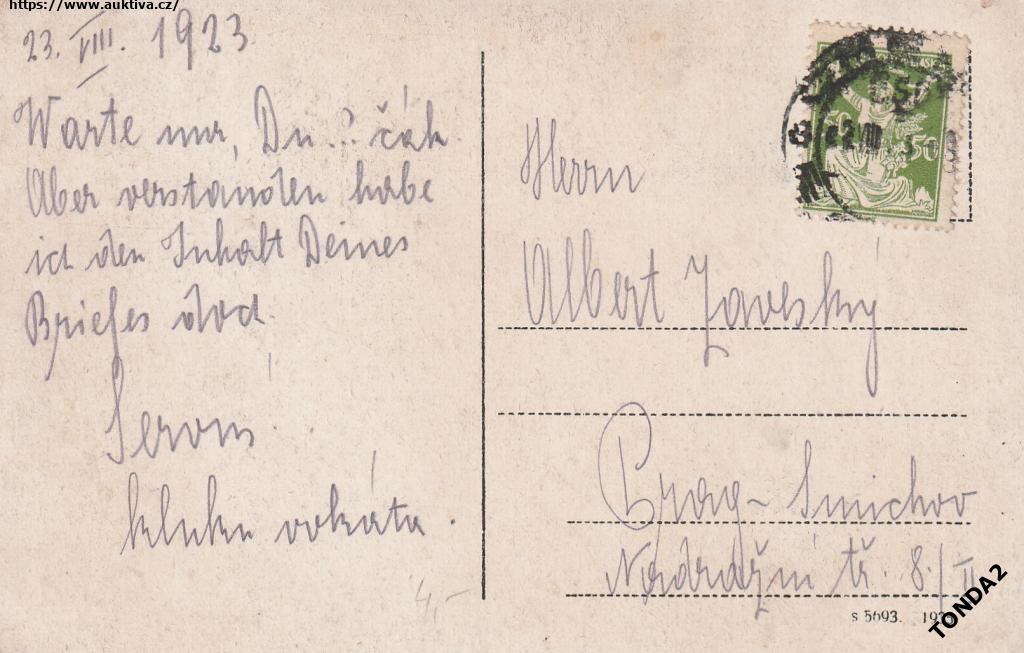 https://www.auktiva.cz/
23. VIII. 1923
Warte nur, Du ..? čák
Aber verstanden habe
ich den Inhalt Deines
Briefes doch.
Servus
kluku vokáta.
4,-
Herrn
Albert Zaveský
Prag - Smichov
Nádražní tř. 8./II
50
50
s 5693.
TONDA2